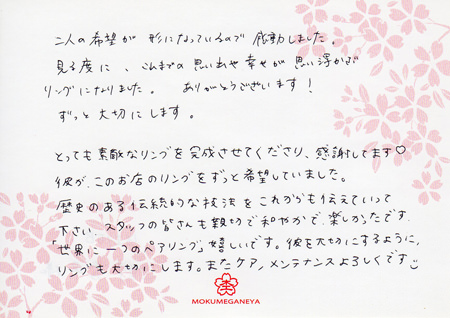 二人の希望が形になっているので感動しました。
見る度に、これまでの思い出や幸せが思い浮かぶ
リングになりました。ありがとうございます!
ずっと大切にします。
とっても素敵なリングを完成させてくださり、感謝してます♡
彼が、このお店のリングをずっと希望していました。
歴史のある伝統的な技法をこれからも伝えていって
下さい。スタッフの皆さんも親切で和やかで、楽しかったです。
「世界に一つのペアリング」嬉しいです。彼を大切にするように、
リングも大切にします。またケア、メンテナンスよろしくです
MOKUMEGANEYA